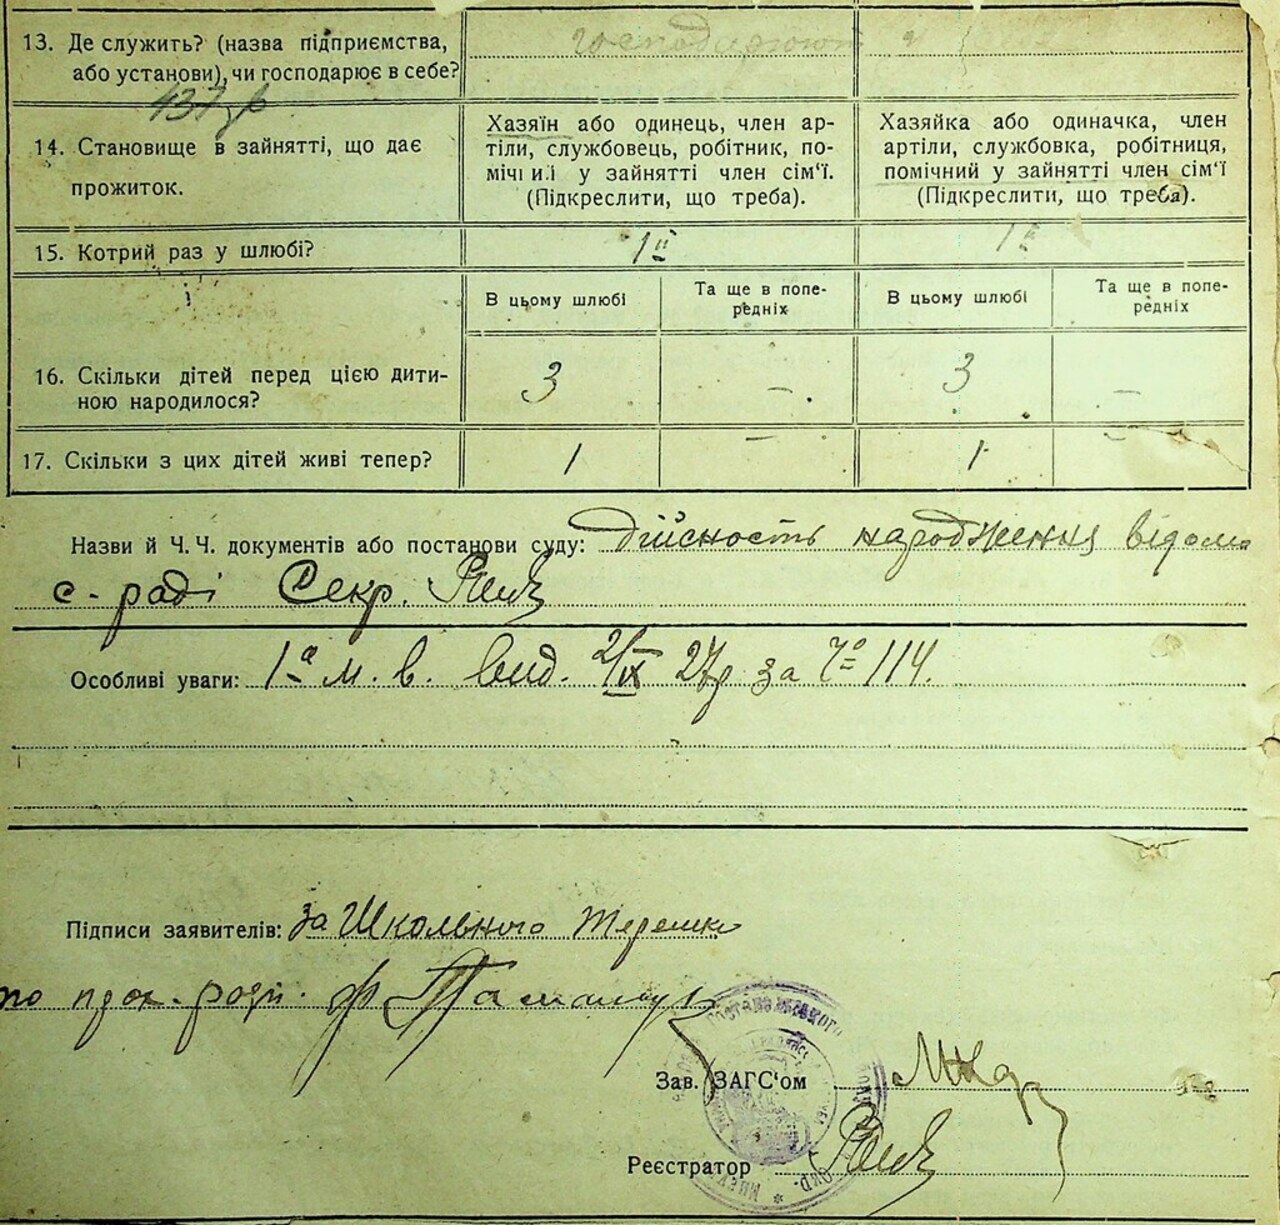 13. Де служить? (назва підприємства,
або установи), чи господарює в себе?
господарюют
437 р
14. Становище в зайнятті, що дає
прожиток.
Хазяїн або одинець, член ар-
тіли, службовець, робітник, по-
мічний у зайнятті член сім'ї.
(Підкреслити, що треба).
Хазяйка або одиначка, член
артіли, службовка, робітниця,
помічний у зайнятті член сім'ї
(Підкреслити, що треба).
15. Котрий раз у шлюбі? 1й 1й
В цьому шлюбі
Та ще в попе-
редніх
В цьому шлюбі
Та ще в попе-
редніх
16. Скільки дітей перед цією дити-
ною народилося?
3 – 3 –
17. Скільки з цих дітей живі тепер? 1 – 1 –
Назви й Ч. Ч. документів або постанови суду: дійсность народження відома
с-раді Секр.
Особливі уваги: 1а м. в. вид. 2/IX 27р за Чо 114.
Підписи заявителів: за Школьного Терешка
по
Зав. ЗАГС'ом
Реєстратор